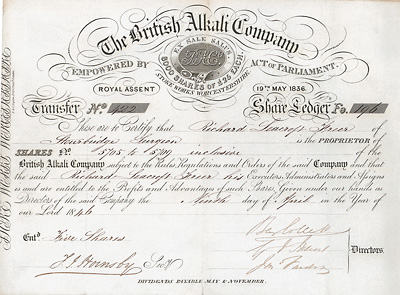 The British Alkali Company
EX SALE SALUS
8000 SHARES OF £25 EACH.
STOKE WORKS WORCESTERSHIRE.
EMPOWERED BY ACT OF PARLIAMENT.
ROYAL ASSENT 19TH MAY 1836.
Transfer No. 422 Share Ledger Fo. 196
These are to Certify that Richard Seacroft Freer of
Stourbridge Surgeon is the PROPRIETOR of
SHARES No. 5795 to 5799 inclusive
British Alkali Company subject to the Rules Regulations and Orders of the said Company and that
the said Richard Seacroft Freer his Executors Administrators and Assigns
is and are entitled to the Profits and Advantages of such Shares. Given under our hands as
Directors of the said Company the Ninth day of April in the Year of
our Lord 1846
Entd. Five Shares
Directors.
Secy.
DIVIDENDS PAYABLE MAY & NOVEMBER.